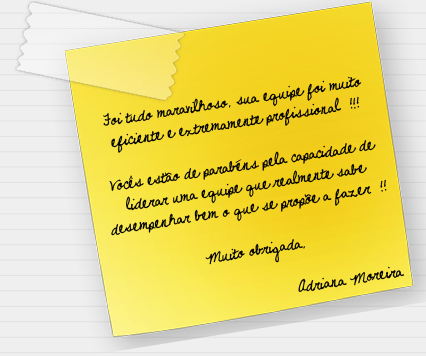 Foi tudo maravilhoso, sua equipe foi muito
eficiente e extremamente profissional !!!
Vocês estão de parabéns pela capacidade de
liderar uma equipe que realmente sabe
desempenhar bem o que se propõe a fazer !!
Muito obrigada,
Adriana Moreira